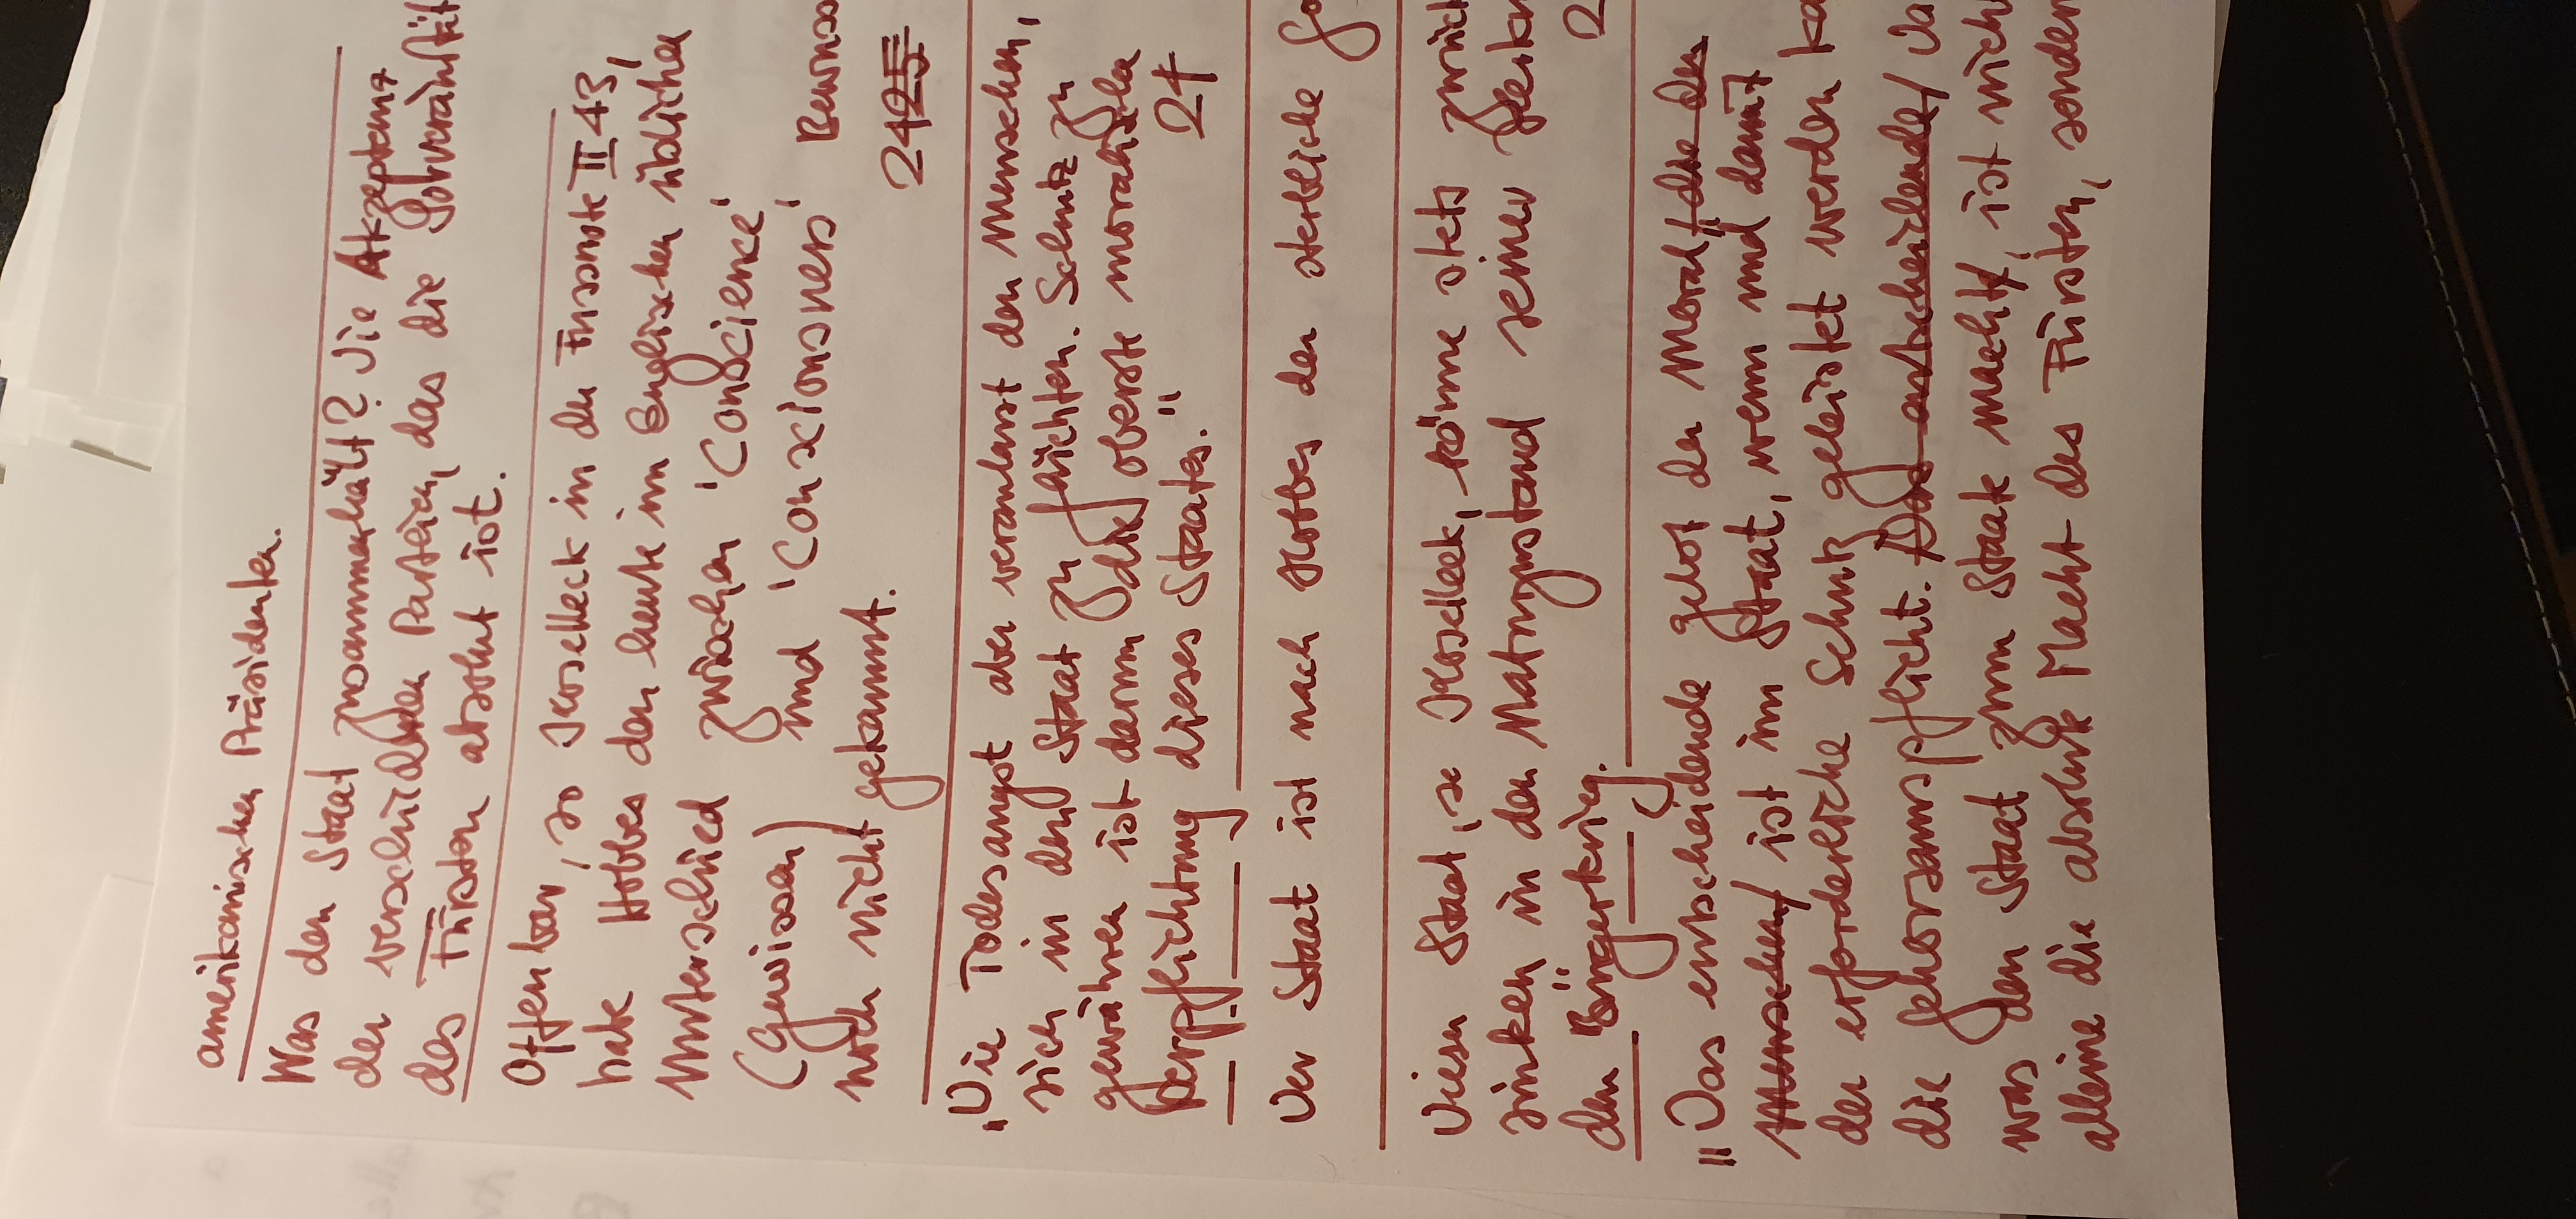 amerikanischen Präsidenten.
Was den Staat zusammenhält? Die Akzeptanz
der verschiedenen Parteien, das die Souveränität
des Fürsten absolut ist.
Offenbar, so Koselleck in der Fussnote II 43,
habe Hobbes den heute im Englischen üblichen
Unterschied zwischen 'Conscience'
(Gewissen) und 'Consciousness' Bewuss
noch nicht gekannt. 24
"Die Todesangst aber veranlasst den Menschen,
sich in den Staat zu flüchten. Schutz zu
gewähren ist darum oberste moralische
Verpflichtung dieses Staates." 24
Der Staat ist nach Hobbes der sterbliche Go
Dieser Staat, so Koselleck, könne stets zurück
sinken in den Naturzustand seiner
den Bürgerkrieg.
"Das entscheidende Gebot der Moral" der
Menschen ist im Staat, wenn und damit
der erforderliche Schutz geleistet werden ka
die Gehorsamspflicht. Das entscheidende, Da
was den Staat zum Staate macht, ist nich
alleine die absolute Macht des Fürsten, sonder